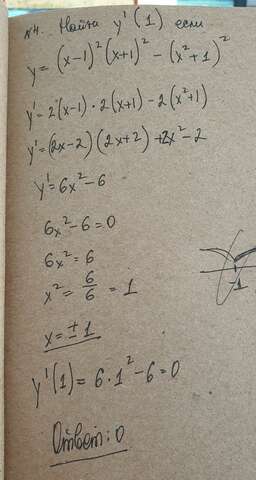 №4. Найти y'(1) если
y = (x-1)²(x+1)² - (x²+1)²
y' = 2(x-1) · 2(x+1) - 2(x²+1)
y' = (2x-2)(2x+2) + 2x² - 2
y' = 6x² - 6
6x² - 6 = 0
6x² = 6
x² = 6/6 = 1
x = ± 1
y'(1) = 6 · 1² - 6 = 0
Ответ: 0
-1